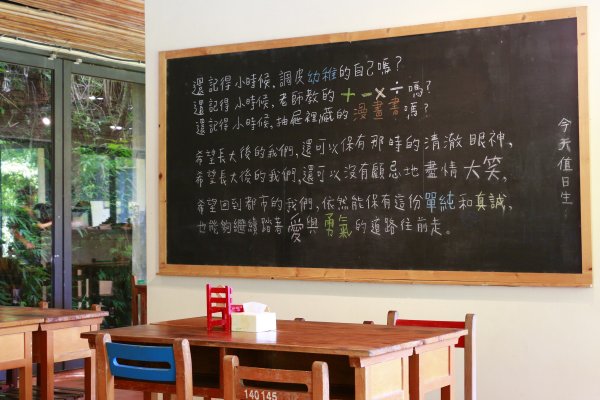 還記得小時候，調皮幼稚的自己嗎？
還記得小時候，老師教的＋－×÷嗎？
還記得小時候，抽屜裡藏的漫畫書嗎？
希望長大後的我們，還可以保有那時的清澈眼神，
希望長大後的我們，還可以沒有顧忌地盡情大笑，
希望回到都市的我們，依然能保有這份單純和真誠，
也能夠繼續踏著愛與勇氣的道路往前走。
今天值日生
140145